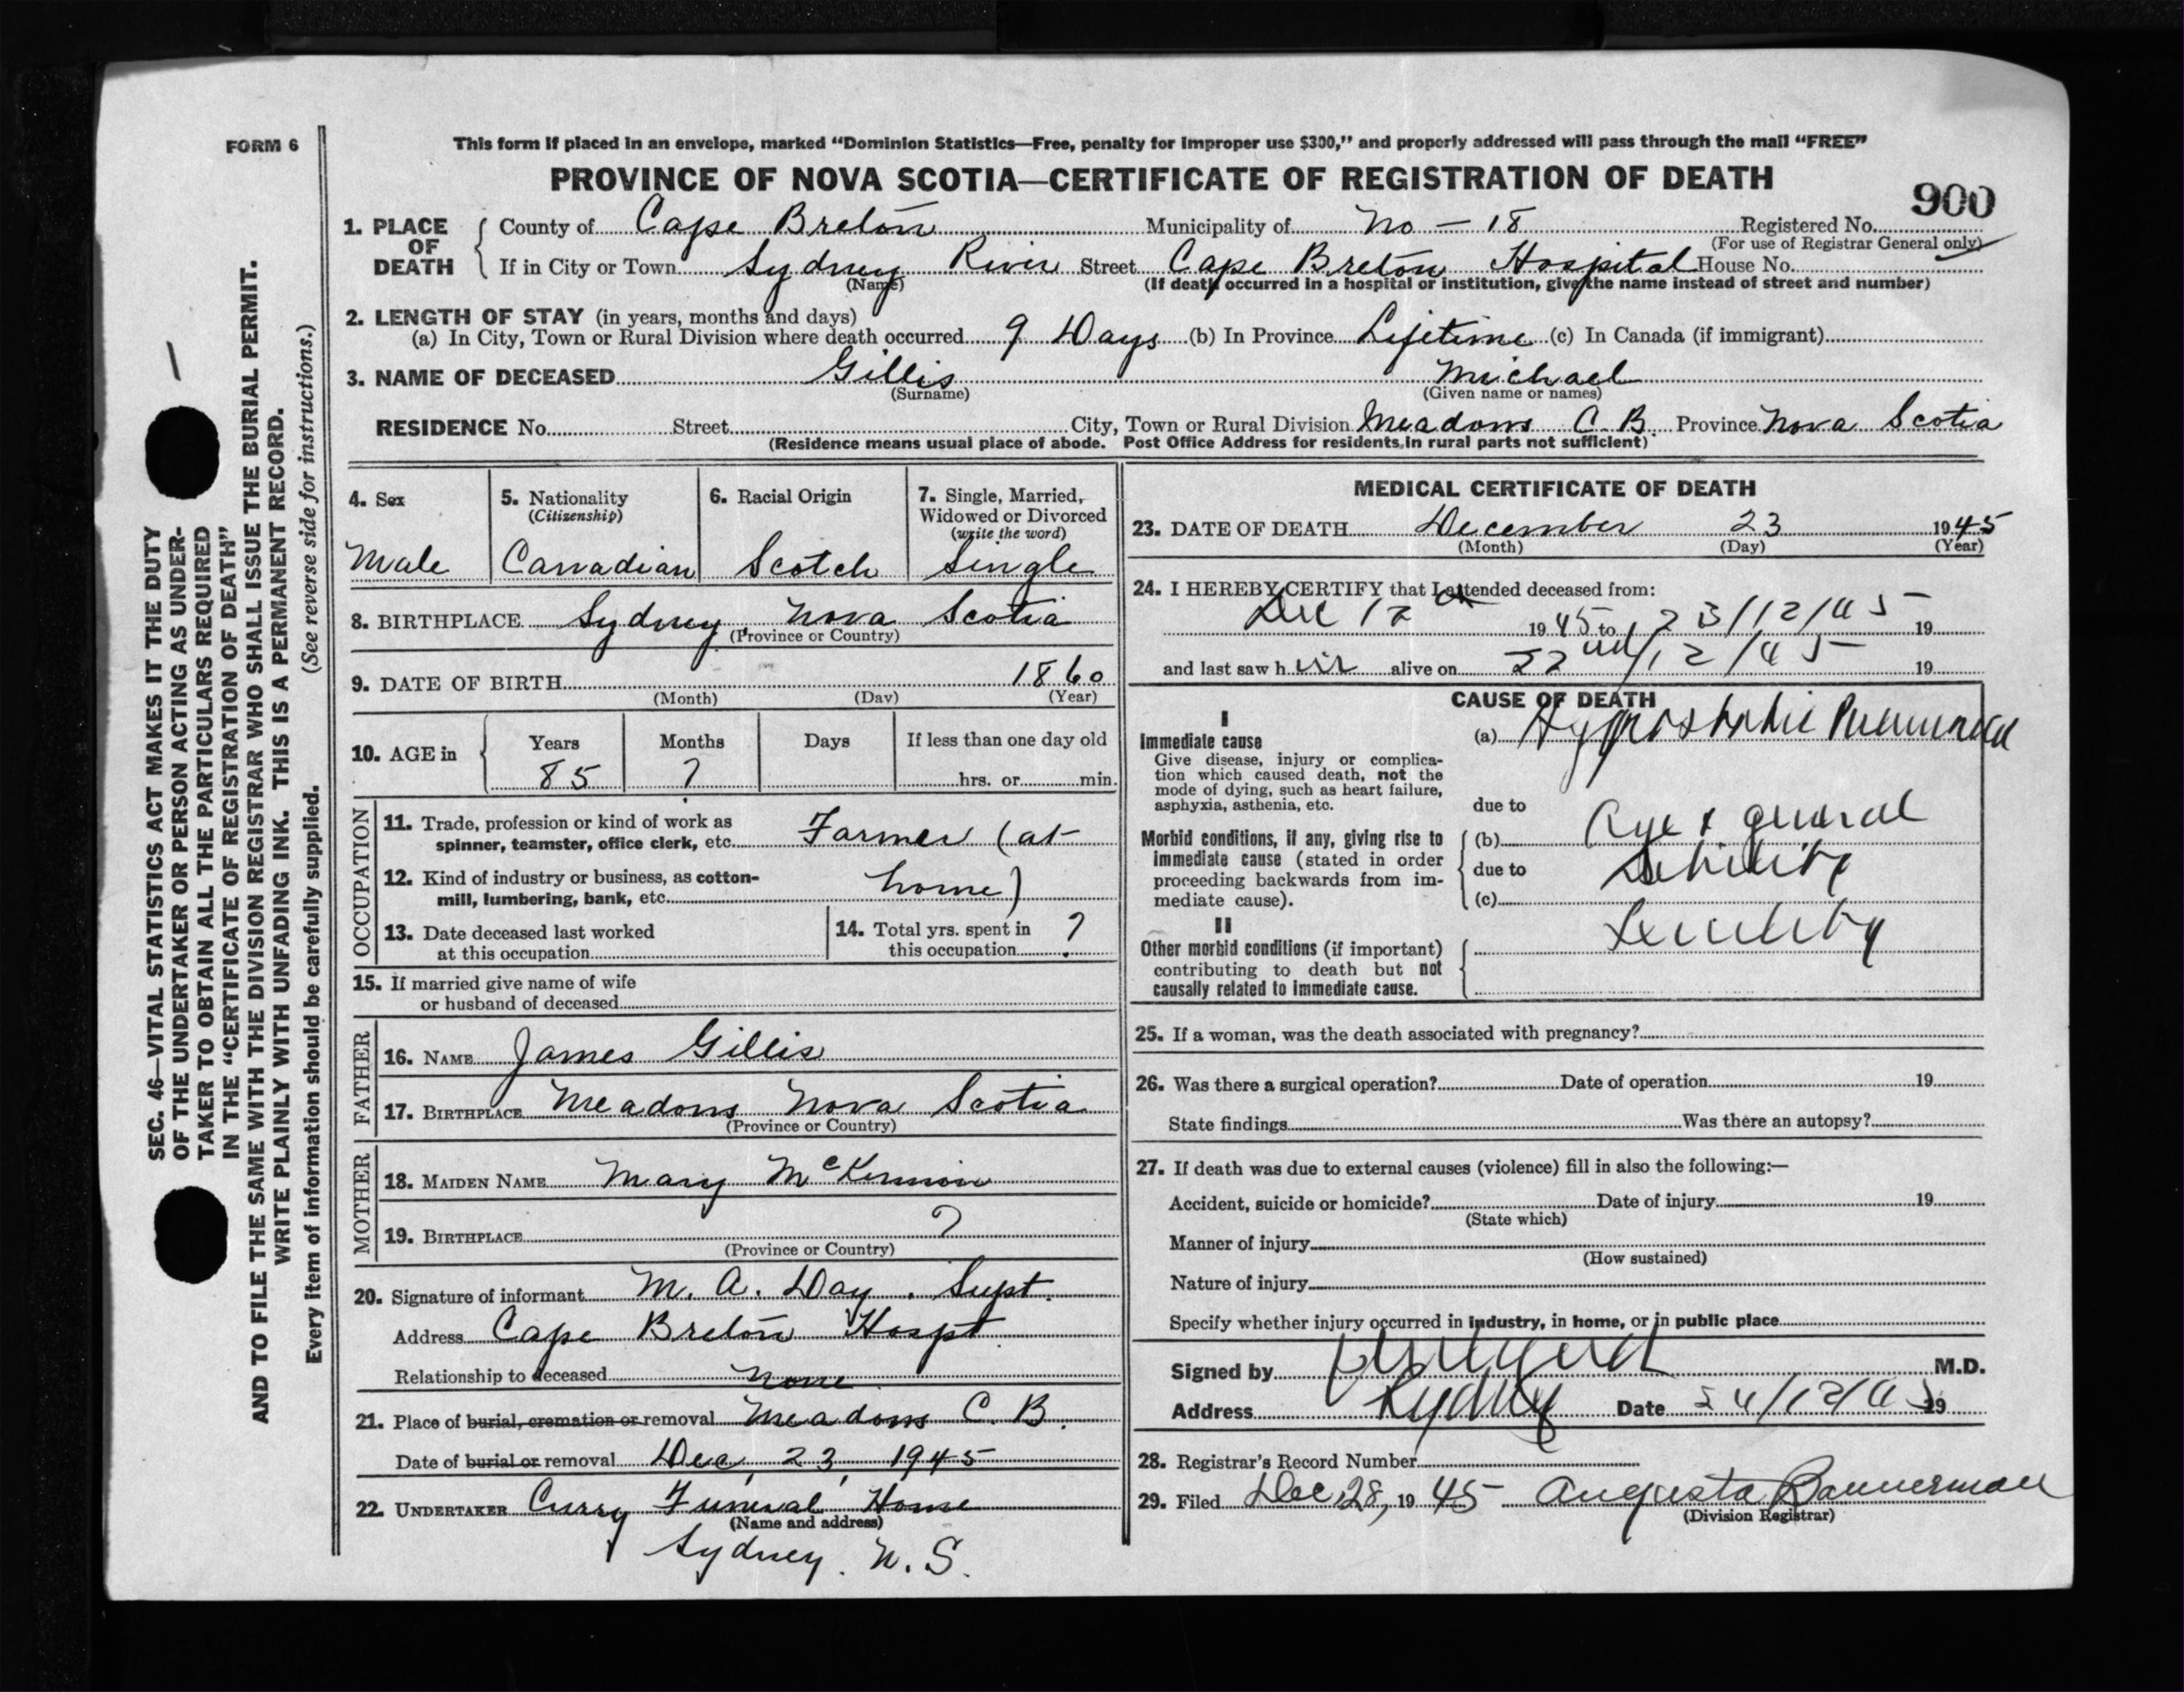 FORM 6
This form if placed in an envelope, marked “Dominion Statistics—Free, penalty for improper use $300,” and properly addressed will pass through the mail “FREE”
PROVINCE OF NOVA SCOTIA—CERTIFICATE OF REGISTRATION OF DEATH
900
1. PLACE OF DEATH County of Cape Breton Municipality of No - 18 Registered No.
(For use of Registrar General only)
If in City or Town Sydney River Street Cape Breton Hospital House No.
(Name) (If death occurred in a hospital or institution, give the name instead of street and number)
2. LENGTH OF STAY (in years, months and days)
(a) In City, Town or Rural Division where death occurred 9 Days (b) In Province Lifetime (c) In Canada (if immigrant)
3. NAME OF DECEASED Gillis Michael
(Surname) (Given name or names)
RESIDENCE No. Street City, Town or Rural Division Meadows C. B. Province Nova Scotia
(Residence means usual place of abode. Post Office Address for residents in rural parts not sufficient)
4. Sex
Male
5. Nationality
(Citizenship)
Canadian
6. Racial Origin
Scotch
7. Single, Married,
Widowed or Divorced
(write the word)
Single
8. BIRTHPLACE Sydney, Nova Scotia
(Province or Country)
9. DATE OF BIRTH 1860
(Month) (Day) (Year)
10. AGE in Years Months Days If less than one day old
85 ? hrs. or min.
OCCUPATION
11. Trade, profession or kind of work as
spinner, teamster, office clerk, etc. Farmer (at
12. Kind of industry or business, as cotton-
mill, lumbering, bank, etc. home)
13. Date deceased last worked
at this occupation
14. Total yrs. spent in
this occupation ?
15. If married give name of wife
or husband of deceased
FATHER
16. NAME James Gillis
17. BIRTHPLACE Meadows Nova Scotia
(Province or Country)
MOTHER
18. MAIDEN NAME Mary McKinnion
19. BIRTHPLACE ?
(Province or Country)
20. Signature of informant M. A. Day. Supt.
Address Cape Breton Hospt.
Relationship to deceased none
21. Place of burial, cremation or removal Meadows C. B.
Date of burial or removal Dec, 23, 1945
22. UNDERTAKER Curry Funeral Home
(Name and address)
Sydney. N. S.
MEDICAL CERTIFICATE OF DEATH
23. DATE OF DEATH December 23 1945
(Month) (Day) (Year)
24. I HEREBY CERTIFY that I attended deceased from:
Dec 12 1945 to 23/12/45 19
and last saw h im alive on 22nd/12/45 19
CAUSE OF DEATH
I
Immediate cause
Give disease, injury or complica-
tion which caused death, not the
mode of dying, such as heart failure,
asphyxia, asthenia, etc.
(a) Hypostatic Pneumonia
due to
Morbid conditions, if any, giving rise to
immediate cause (stated in order
proceeding backwards from im-
mediate cause).
(b) Age & general
due to debility
(c)
II
Senility
Other morbid conditions (if important)
contributing to death but not
causally related to immediate cause.
25. If a woman, was the death associated with pregnancy?
26. Was there a surgical operation? Date of operation 19
State findings Was there an autopsy?
27. If death was due to external causes (violence) fill in also the following:—
Accident, suicide or homicide? Date of injury 19
(State which)
Manner of injury
(How sustained)
Nature of injury
Specify whether injury occurred in industry, in home, or in public place
Signed by M.D.
Address Sydney Date 24/12/45 19
28. Registrar's Record Number
29. Filed Dec 28, 1945 Augusta Bannerman
(Division Registrar)
SEC. 46—VITAL STATISTICS ACT MAKES IT THE DUTY
OF THE UNDERTAKER OR PERSON ACTING AS UNDER-
TAKER TO OBTAIN ALL THE PARTICULARS REQUIRED
IN THE “CERTIFICATE OF REGISTRATION OF DEATH”
AND TO FILE THE SAME WITH THE DIVISION REGISTRAR WHO SHALL ISSUE THE BURIAL PERMIT.
WRITE PLAINLY WITH UNFADING INK. THIS IS A PERMANENT RECORD.
Every item of information should be carefully supplied. (See reverse side for instructions.)